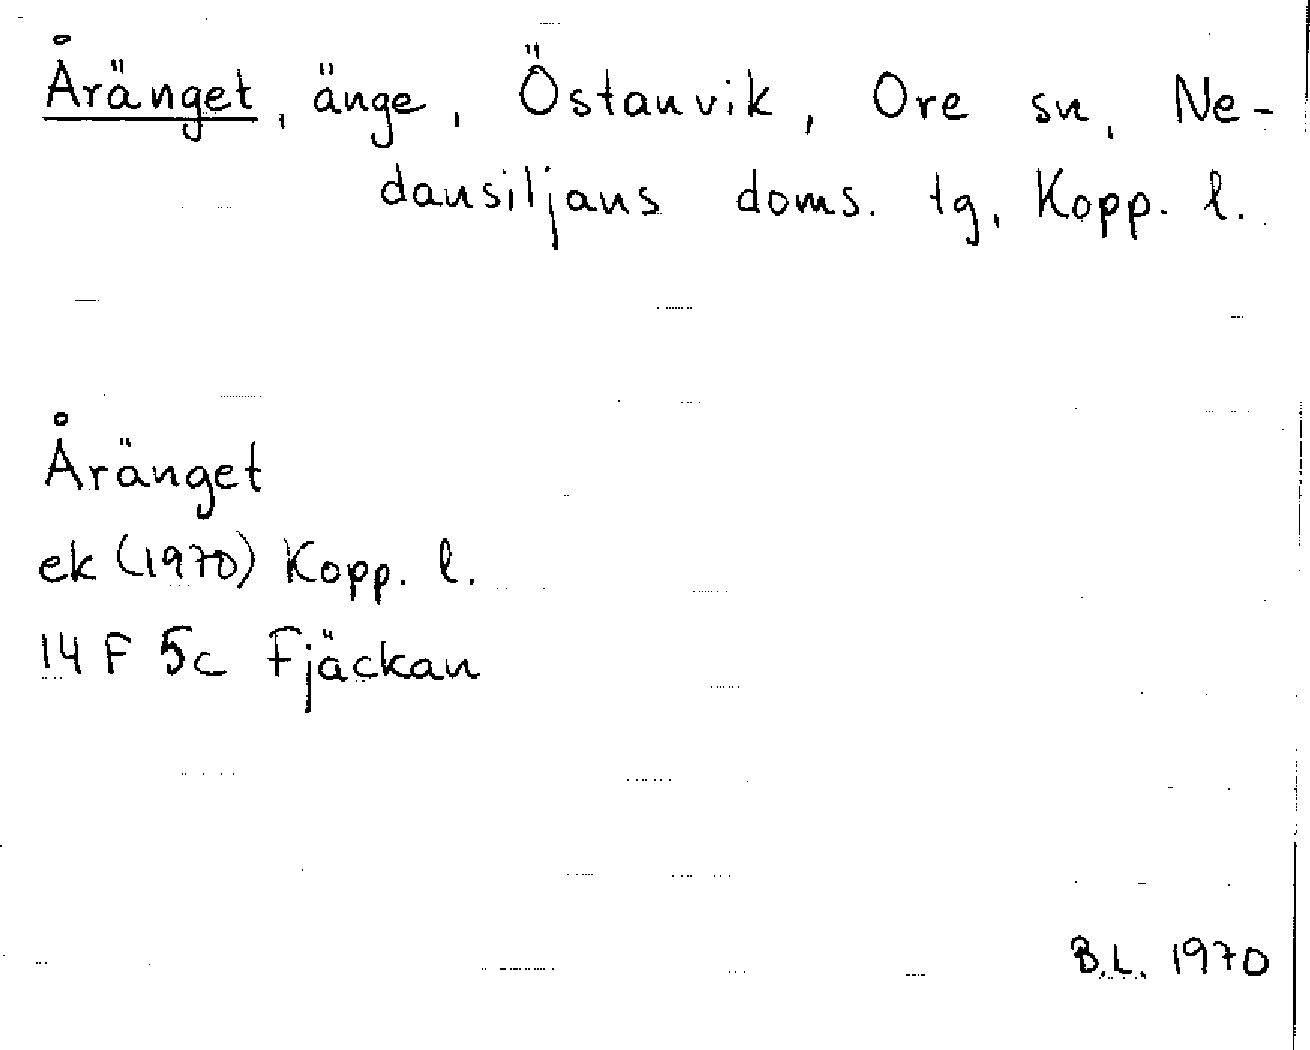 Åränget, änge, Östanvik, Ore sn, Ne-
dansiljans doms. tg, Kopp. l.
Åränget
ek (1970) Kopp. l.
14 F 5c Fjäckan
B.L. 1970